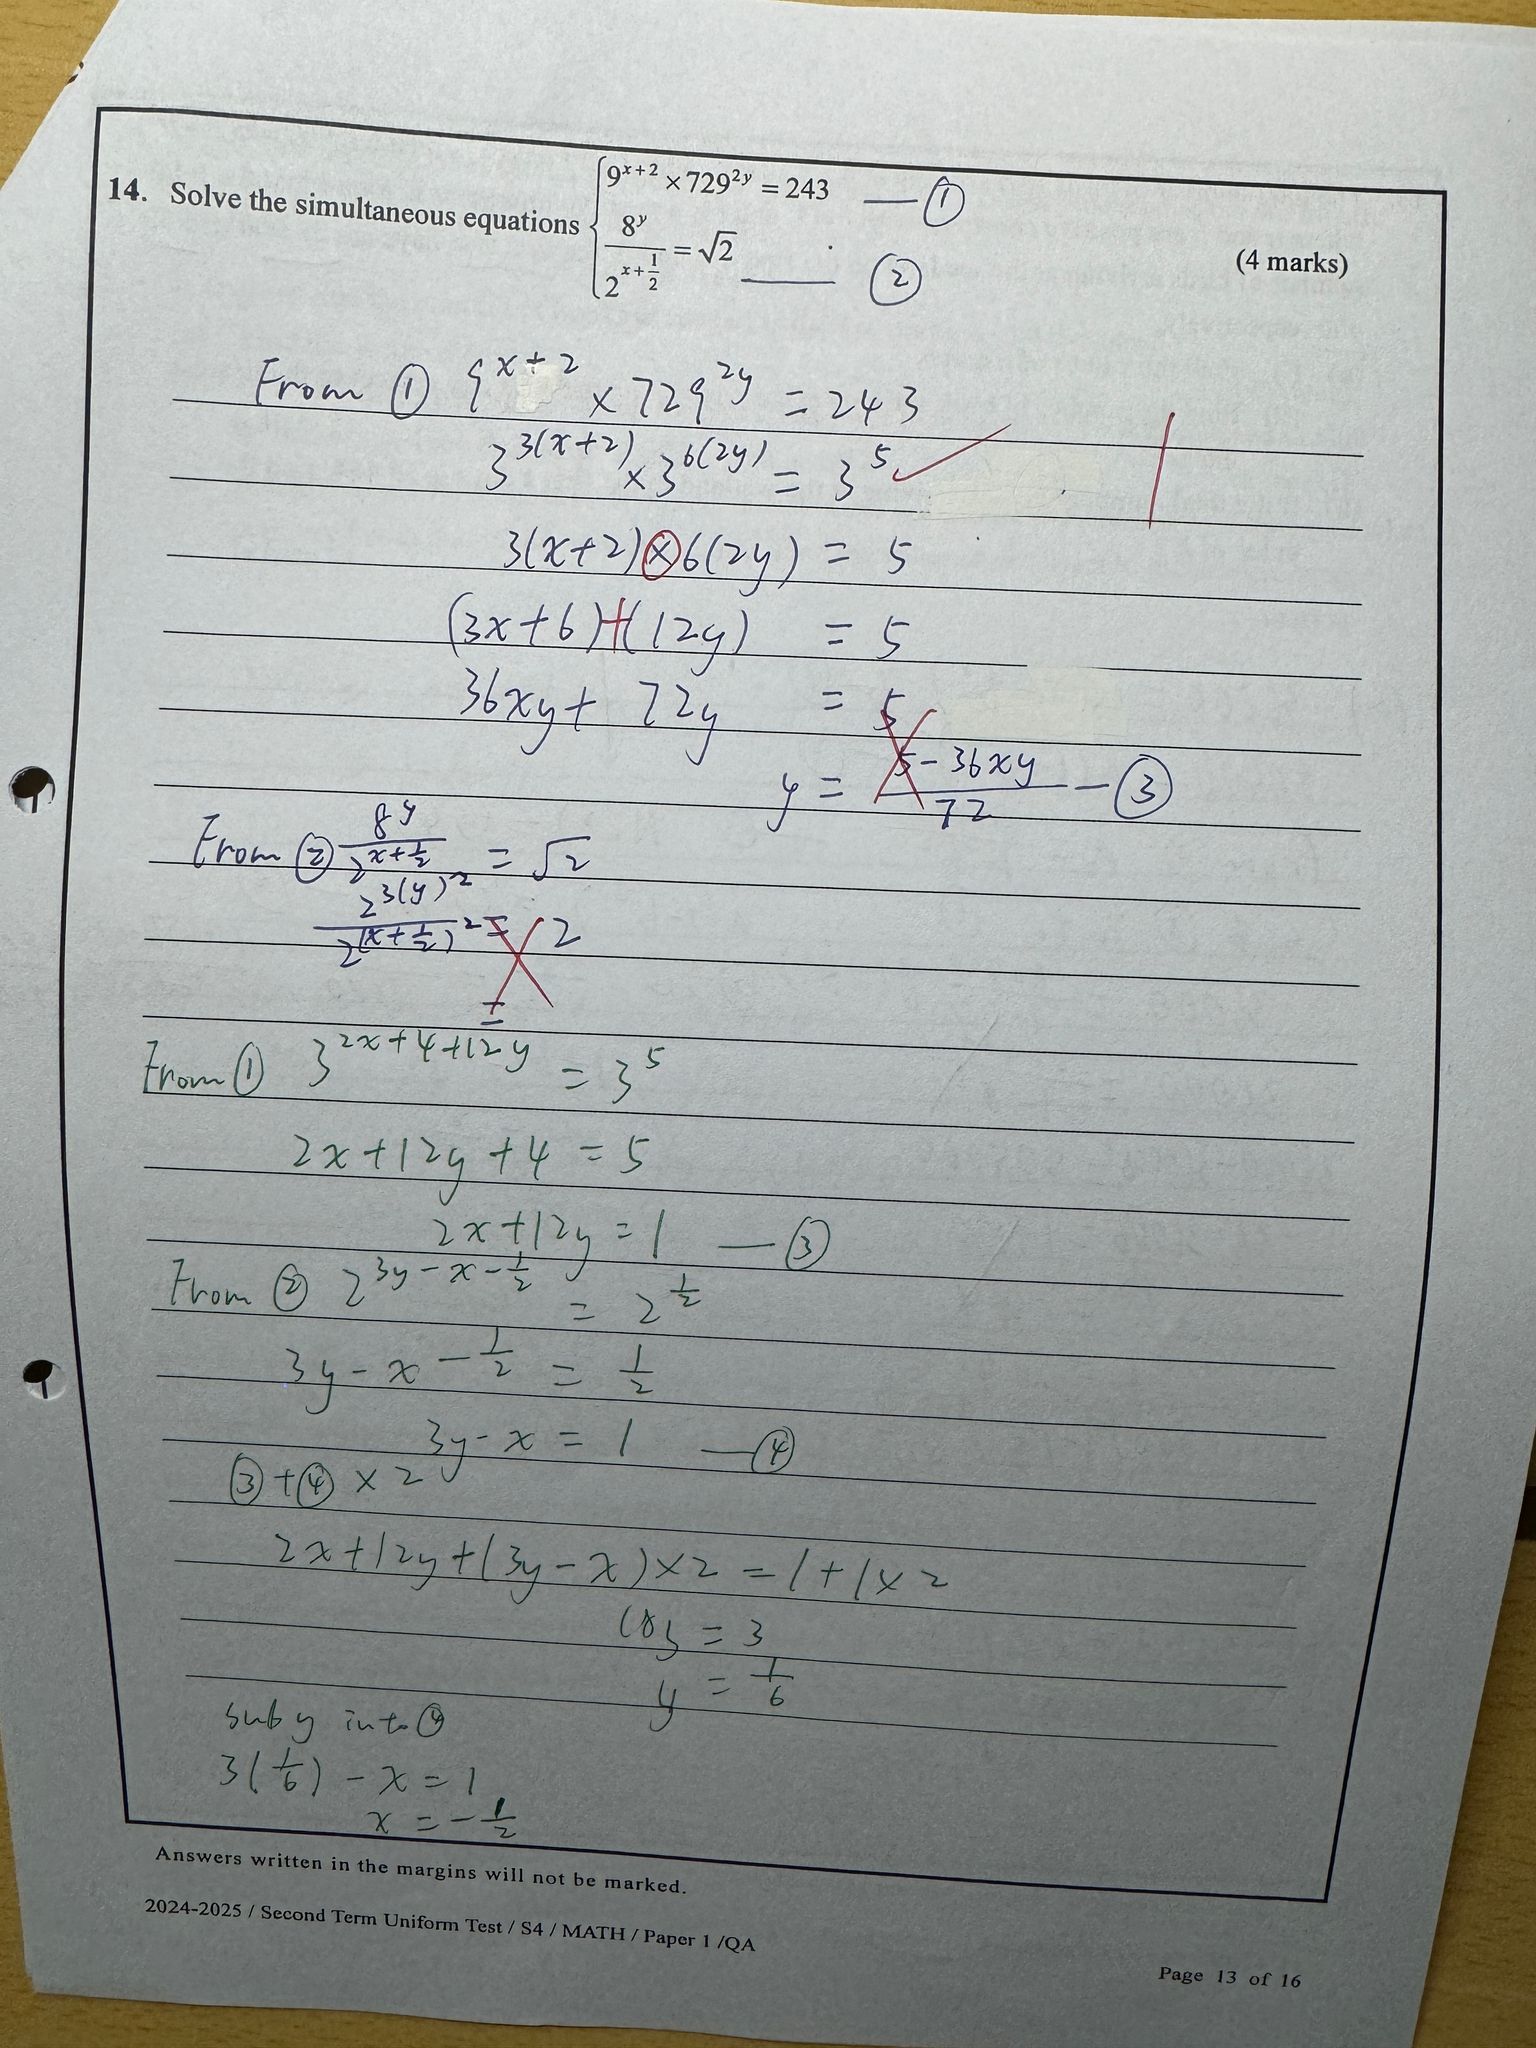 14. Solve the simultaneous equations { 9^{x+2} × 729^{2y} = 243 — ①
8^y / 2^{x+1/2} = √2 — ②
(4 marks)
From ① 9^{x+2} × 729^{2y} = 243
3^{3(x+2)} × 3^{6(2y)} = 3^5 ✓
3(x+2) × 6(2y) = 5
(3x+6)+(12y) = 5
36xy + 72y = 5
y = (5 - 36xy)/72 — ③
From ② 8^y / 2^{x+1/2} = √2
2^{3(y)^2} / 2^{(x+1/2)^2} = 2
=
From ① 3^{2x+4+12y} = 3^5
2x+12y+4 = 5
2x+12y = 1 — ③
From ② 2^{3y-x-1/2} = 2^{1/2}
3y - x - 1/2 = 1/2
3y - x = 1 — ④
③ + ④ × 2
2x+12y+(3y-x)×2 = 1+1×2
18y = 3
y = 1/6
sub y into ④
3(1/6) - x = 1
x = -1/2
Answers written in the margins will not be marked.
2024-2025 / Second Term Uniform Test / S4 / MATH / Paper 1 /QA
Page 13 of 16